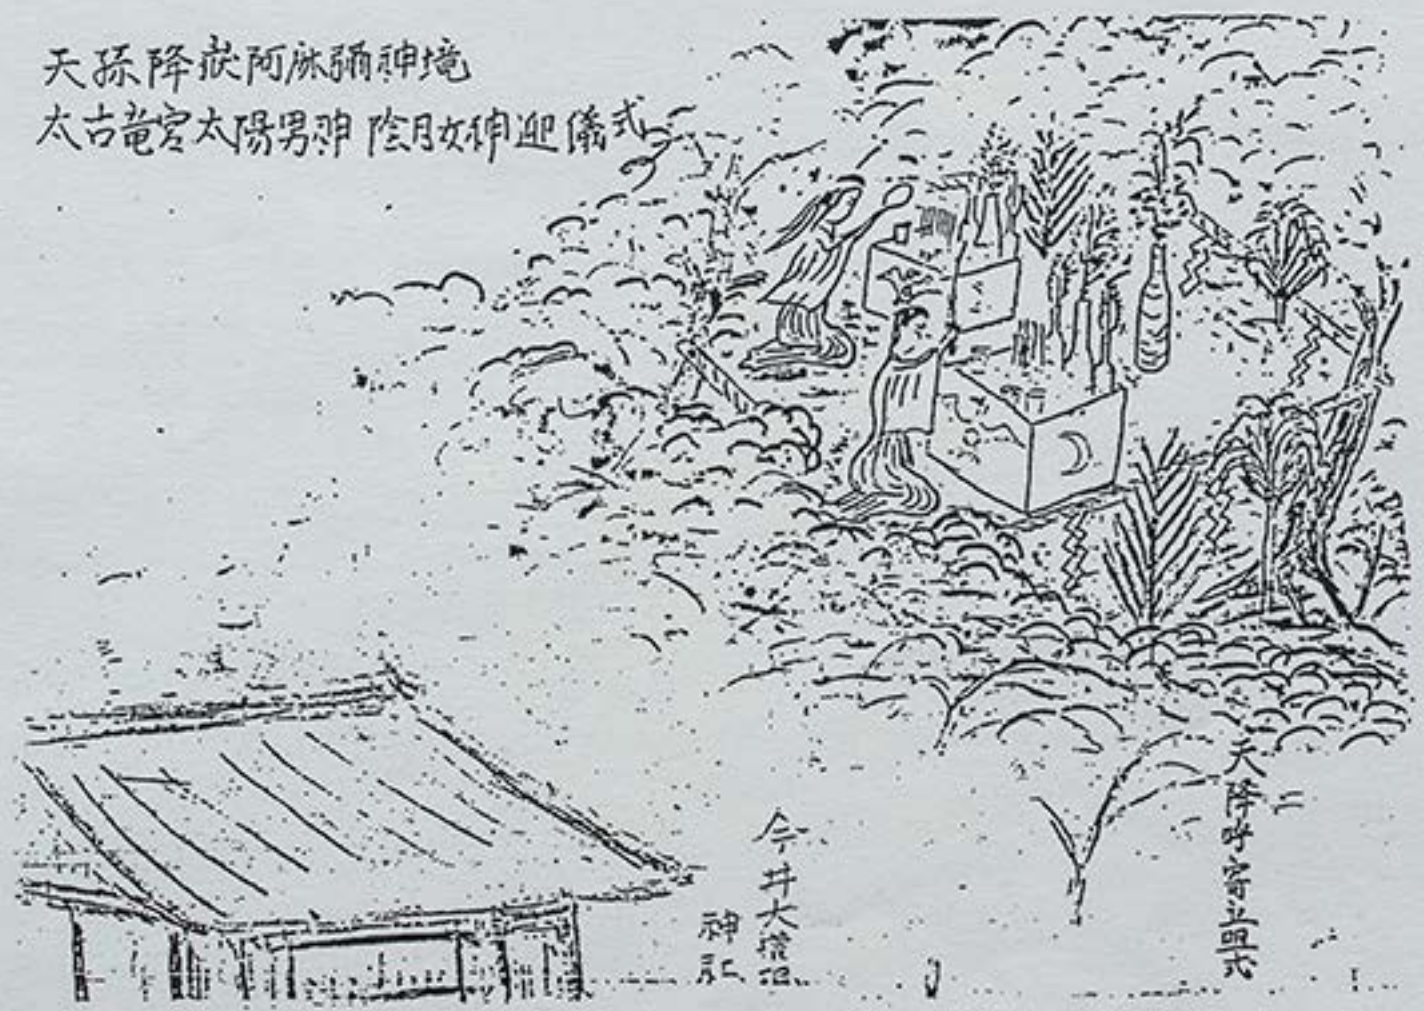 天孫降嶽阿麻彌神境
太古竜宮太陽男神 陰月女神迎儀式
天降呼寄
今井大権現
神社